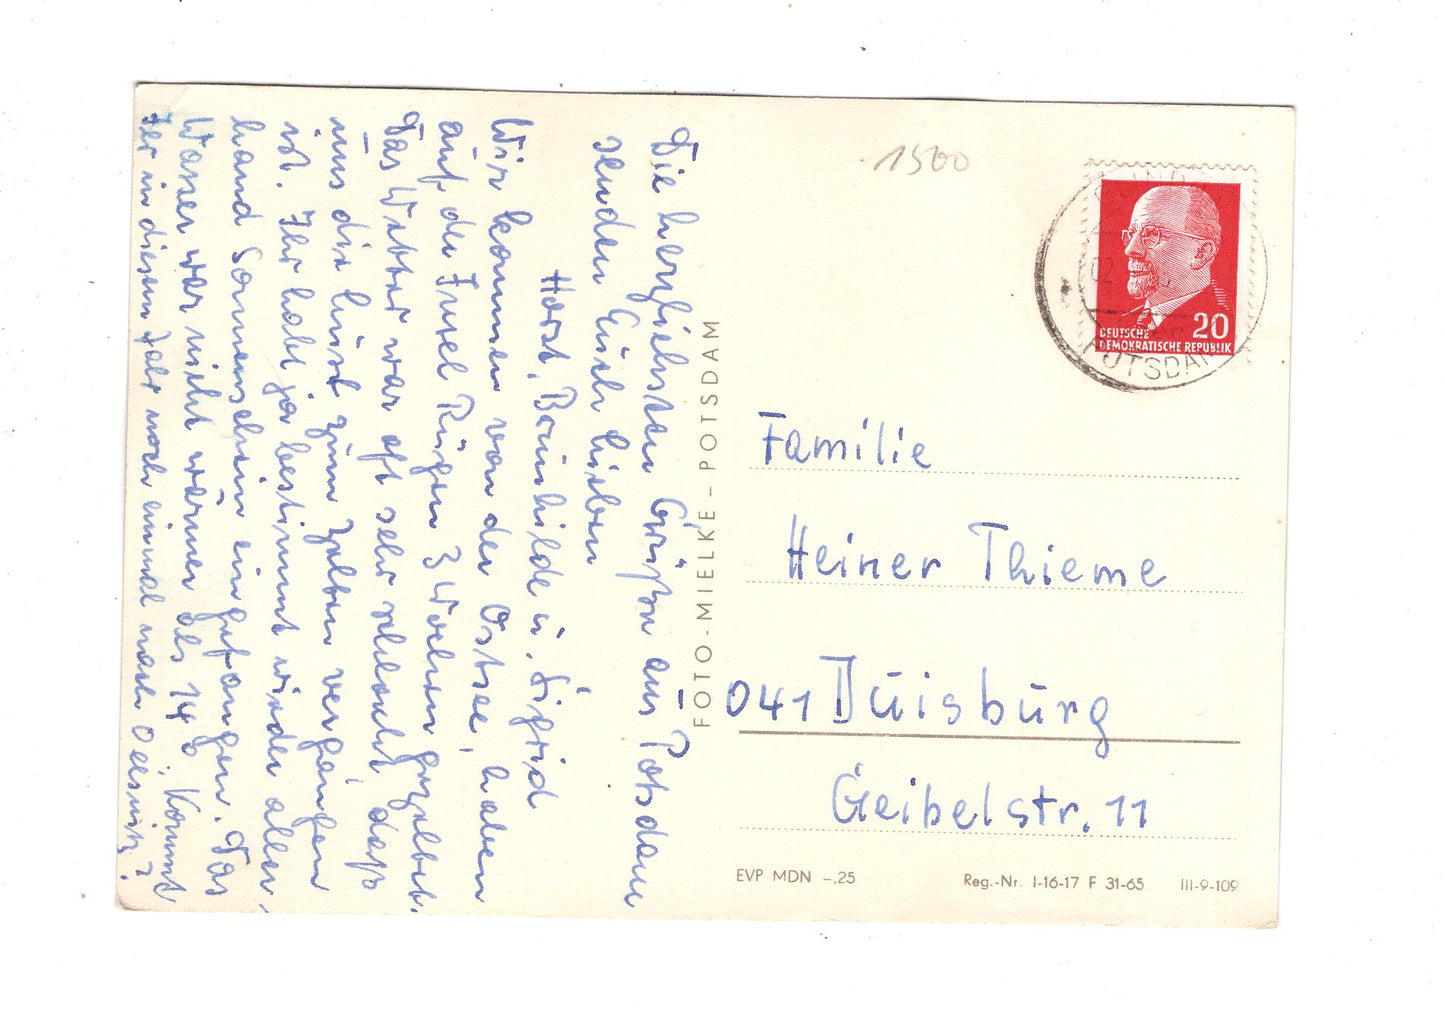 Die herzlichsten Grüße aus Potsdam
senden Euch lieben
Horst, Brunhilde u. Sigrid
Wir kommen von der Ostsee, haben
auf der Insel Rügen 3 Wochen gezeltet.
Das Wetter war oft sehr schlecht daß
uns die Lust zum Zelten vergangen
ist. Ihr habt ja bestimmt wieder aller-
hand Sonnenschein eingefangen. Das
Wasser war nicht wärmer als 14°. Kommt
Ihr in diesem Jahr noch einmal nach Oelsnitz?
FOTO-MIELKE-POTSDAM
1500
02
POTSDAM
20
DEUTSCHE
DEMOKRATISCHE REPUBLIK
Familie
Heiner Thieme
041 Duisburg
Geibelstr. 11
EVP MDN -,25
Reg.-Nr. I-16-17 F 31-65 III-9-109